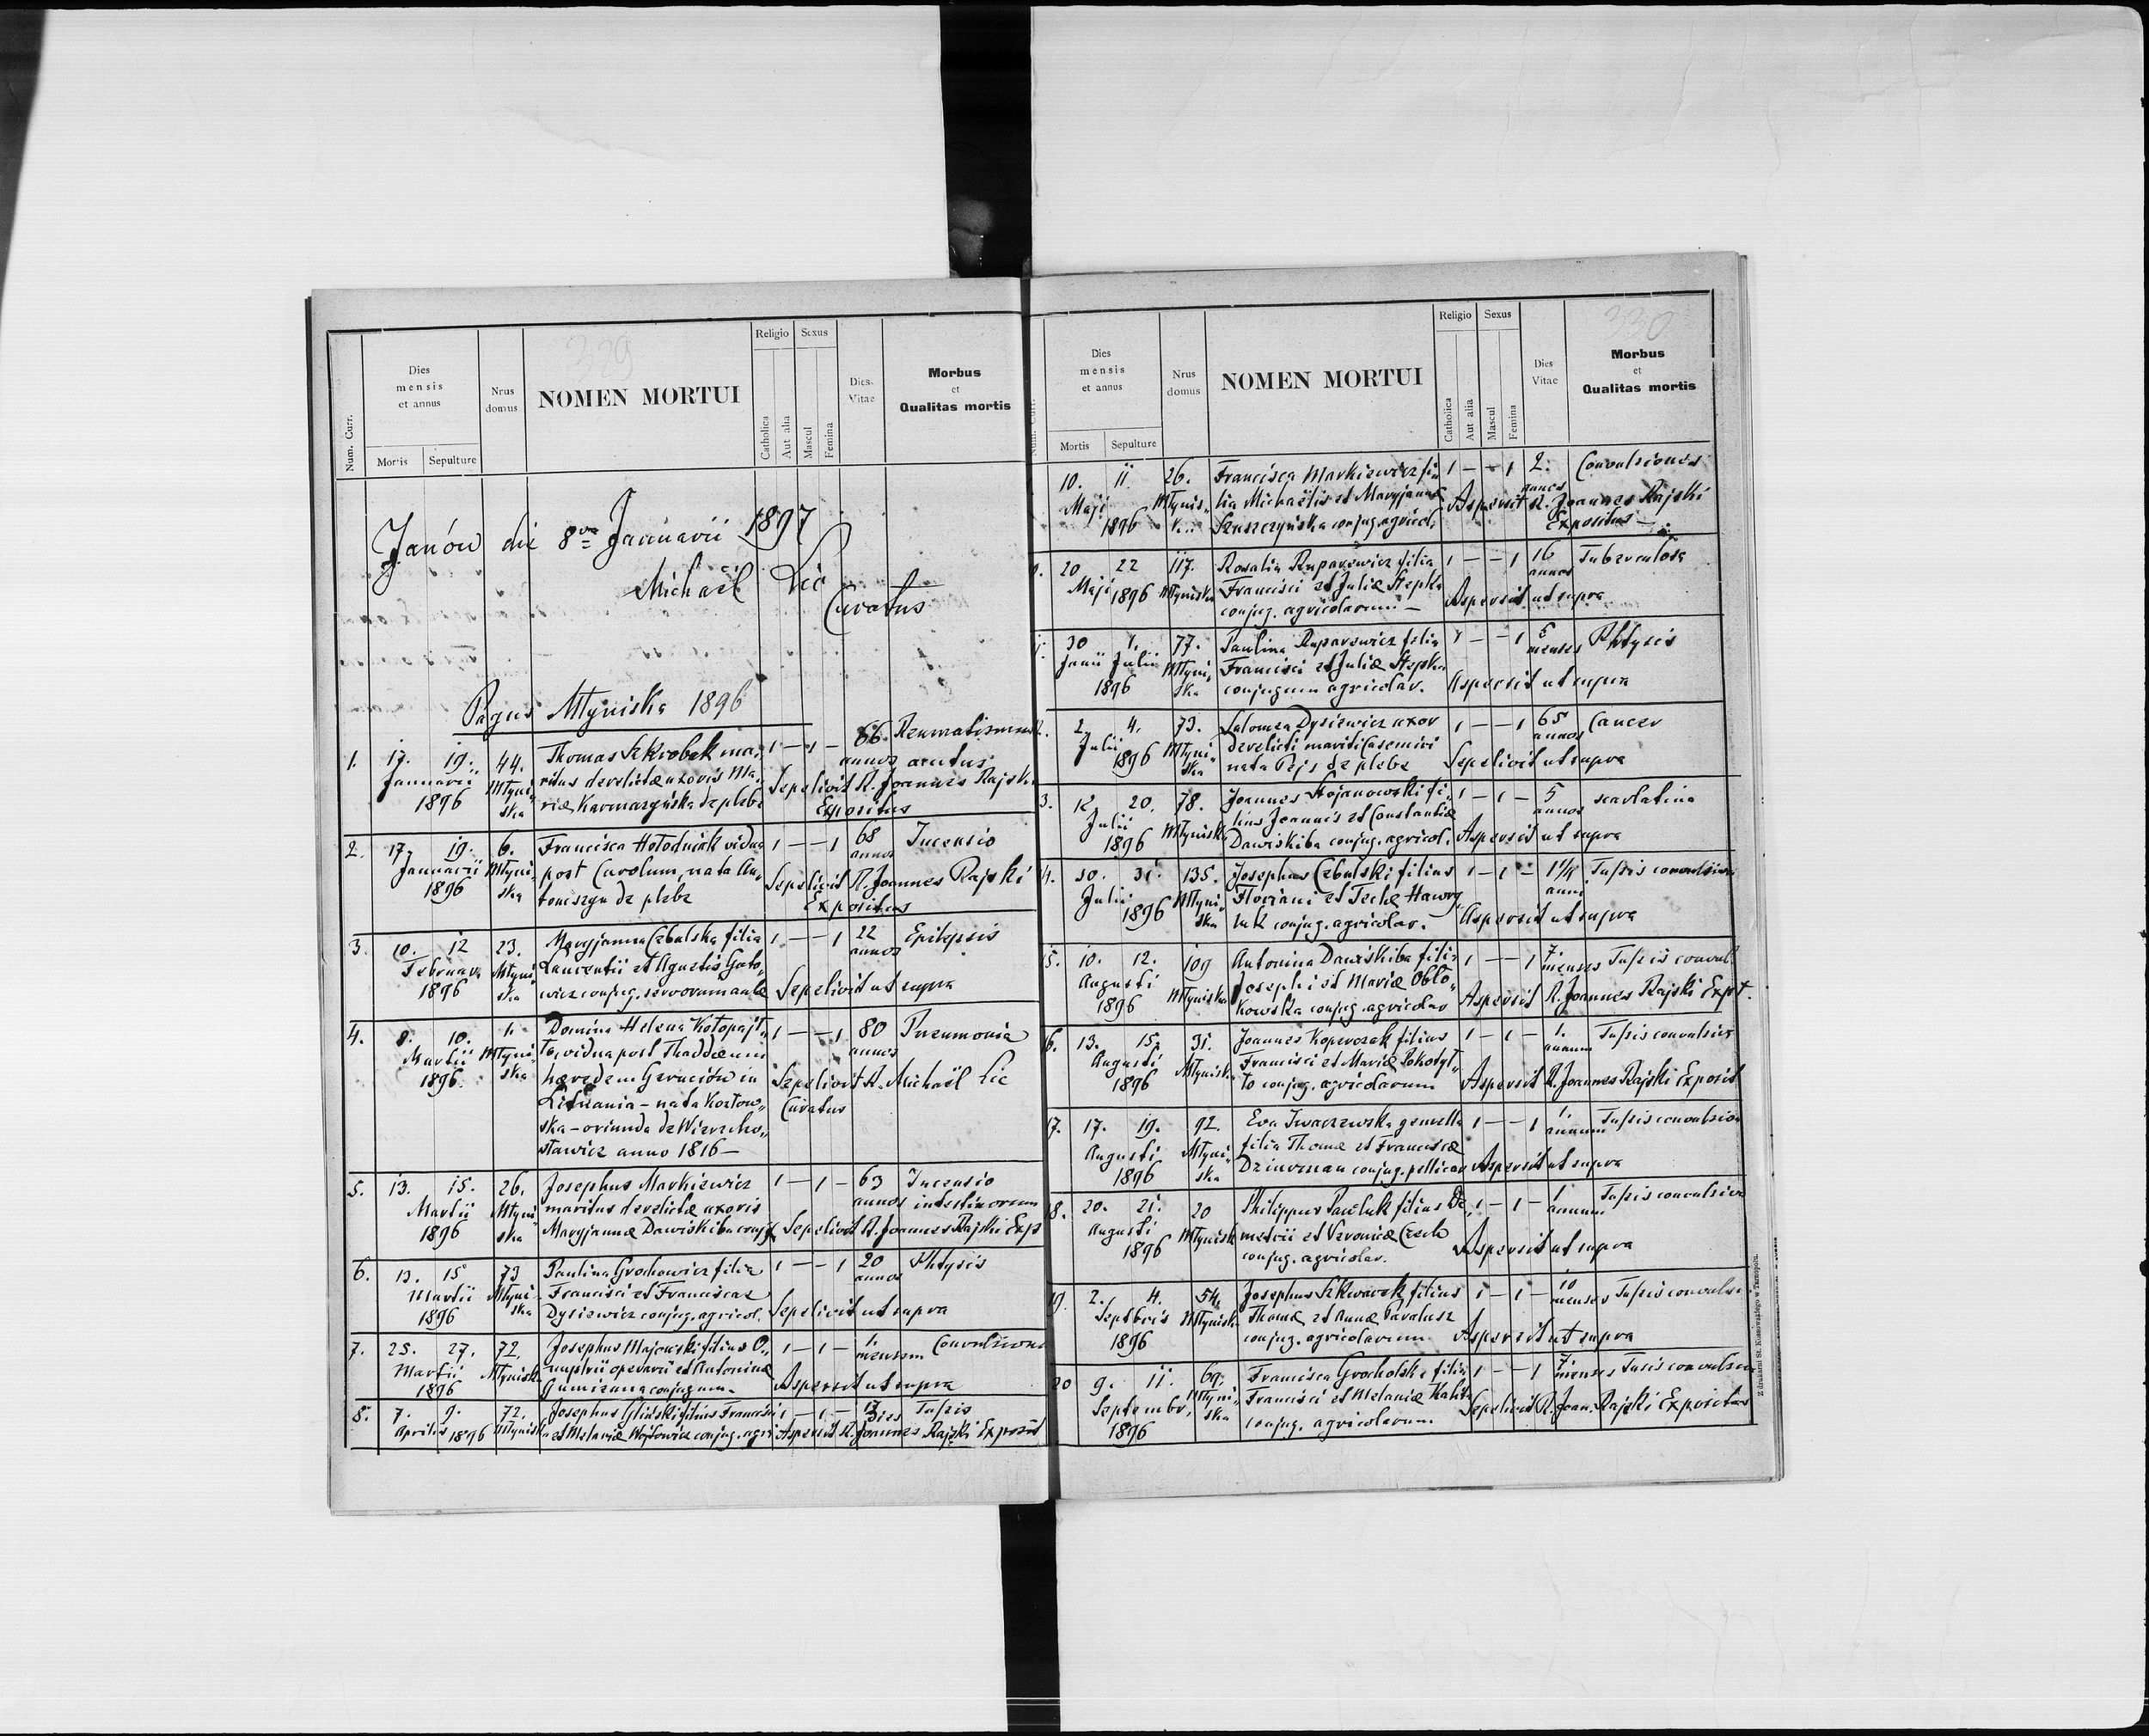 329
Num. Curr.
Dies mensis et annus
Mortis
Sepulture
Nrus domus
NOMEN MORTUI
Religio
Catholica
Aut alia
Sexus
Mascul
Femina
Dies Vitae
Morbus et Qualitas mortis
Janów die 8va Januarii 1897
Michaël Lic
Curatus
Pagus Młyniska 1896
1. 17. 19. 44. Thomas Szkrobek ma„ 1 — 1 — 66 Reumatismus
Januarii Młyni„ ritus derelictæ uxoris Ma„ annos acutus
1896 ska riæ Karmazyńska de plebe Sepelivit R. Joannes Rajski
Expositus
2. 17. 19. 6. Francisca Hołodniak vidua 1 — — 1 68 Incensio
Januarii Młyni„ post Carolum, nata An„ annos
1896 ska tonczyn de plebe Sepelivit R. Joannes Rajski
Expositus
3. 10. 12 23. Maryjanna Cebulska filia 1 — — 1 22 Epilepsis
Februar. Młyni„ Laurentii et Agnetis Gato„ annos
1896 ska wicz conjug. servorum aulæ Sepelivit ut supra
4. 8. 10. 1. Domina Helena Kołopajt„ 1 — — 1 80 Pneumonia
Martii Młyni„ ta, vidua post Thaddæum annos
1896 ska hæredem Gerución in Sepelivit R. Michaël Lic
Lithuania – nata Kozłow„ Curatus
ska – oriunda de Wierzcho„
sławicz anno 1816 –
5. 13. 15. 26. Josephus Markiewicz 1 — 1 — 63 Incensio
Martii Młyni„ maritus derelictæ uxoris annos intestinorum
1896 ska Maryjannæ Dawiskiba conjug. Sepelivit R. Joannes Rajski Exp
6. 13. 15 73 Paulina Grochowicz filia 1 — — 1 20 Phtysis
Martii Młyni„ Francisci et Franciscæ annos
1896 ska Dysiewicz conjug. agricol. Sepelivit ut supra
7. 25. 27. 72. Josephus Majewski filius O„ 1 — 1 — 1. Convulsiones
Martii Młynisk. nuphrii operarii et Antoninæ mensem
1896 conjugum. Aspersit ut supra
8. 7. 9. 72. Josephus Gliński filius Francisci 1 — 1 — 13 Tussis
Aprilis 1896 Młyniska et Melaniæ Wojtowicz conjug. agri Aspersit R. Joannes Rajski Exposit
dies
330
Num. Curr.
Dies mensis et annus
Mortis
Sepulture
Nrus domus
NOMEN MORTUI
Religio
Catholica
Aut alia
Sexus
Mascul
Femina
Dies Vitae
Morbus et Qualitas mortis
10. 11. 26. Francisca Markiewicz fi„ 1 — — 1 2. Convulsiones
Maji Młynis„ lia Michaëlis et Maryjannæ Aspersit R. Joannes Rajski
1896 Szuszczyńska conjug. agricol. Expositus —
annos
20 22 117. Rosalia Ruparewicz filia 1 — — 1 16 Tuberculosa
Maji 1896 Młyniska Francisci et Juliæ Stepka annos
conjug. agricolarum — Aspersit ut supra
30 1. 77. Paulina Ruparewicz filia 1 — — 1 5 Phtysis
Junii Julii Młyni„ Francisci et Juliæ Stepka menses
1896 ska conjugum agricolar. Aspersit ut supra
2. 2. 4. 73. Salomea Dysiewicz uxor 1 — — 1 65 Cancer
Julii Młyni„ derelicti mariti Casemiri annos
1896 ska nata Pejs de plebe Sepelivit ut supra
3. 12 20. 78. Joannes Stojanowski fi„ 1 — 1 — 5 scarlatina
Julii Młyniska lius Joannis et Constantiæ annos
1896 Dawiskiba conjug. agricol. Aspersit ut supra
4. 30. 31. 135. Josephus Cebulski filius 1 — 1 — Tussis convulsiva
Julii Młyni„ Floriani et Teclæ Hawry„
1896 ska luk conjug. agricolar. Aspersit ut supra
15. 10. 12. 109 Antonina Dawiskiba filia 1 — — 1 7 Tussis convul
Augusti Młyniska Josephi et Mariæ Obło„ menses
1896 kowska conjug. agricolar Aspersit R. Joannes Rajski Expt.
6. 13. 15. 31. Joannes Koperczak filius 1 — 1 — 1. Tussis convulsiva
Augusti Młyniska Francisci et Mariæ Pokodył„ annum
1896 ło conjug. agricolarum Aspersit R. Joannes Rajski Exposit
17. 17. 19. 92. Eva Iwaszewska gemella 1 — — 1 1. Tussis convulsiva
Augusti Młyni„ filia Thomæ et Franciscæ annum
1896 ska Dziurman conjug. pellicar Aspersit ut supra
18. 20. 21. 20 Philippus Pawluk filius De„ 1 — 1 — 1 Tussis convulsiva
Augusti Młynisk metrii et Veronicæ Czech annum
1896 conjug. agricolar. Aspersit ut supra
19. 2. 4. 54. Josephus filius 1 — 1 — 10 Tussis convulsi
Septbris Młynisk. Thomæ et Annæ menses
1896 conjug. agricolarum Aspersit ut supra
20 9. 11. 69. Francisca Grocholska filia 1 — — 1 7. Tussis convulsiva
Septembr. Młyni„ Francisci et Melaniæ menses
1896 ska conjug. agricolarum. Sepelivit R. Joan. Rajski Expositus
Z drukarni St. Kossowskiego w Tarnopolu.